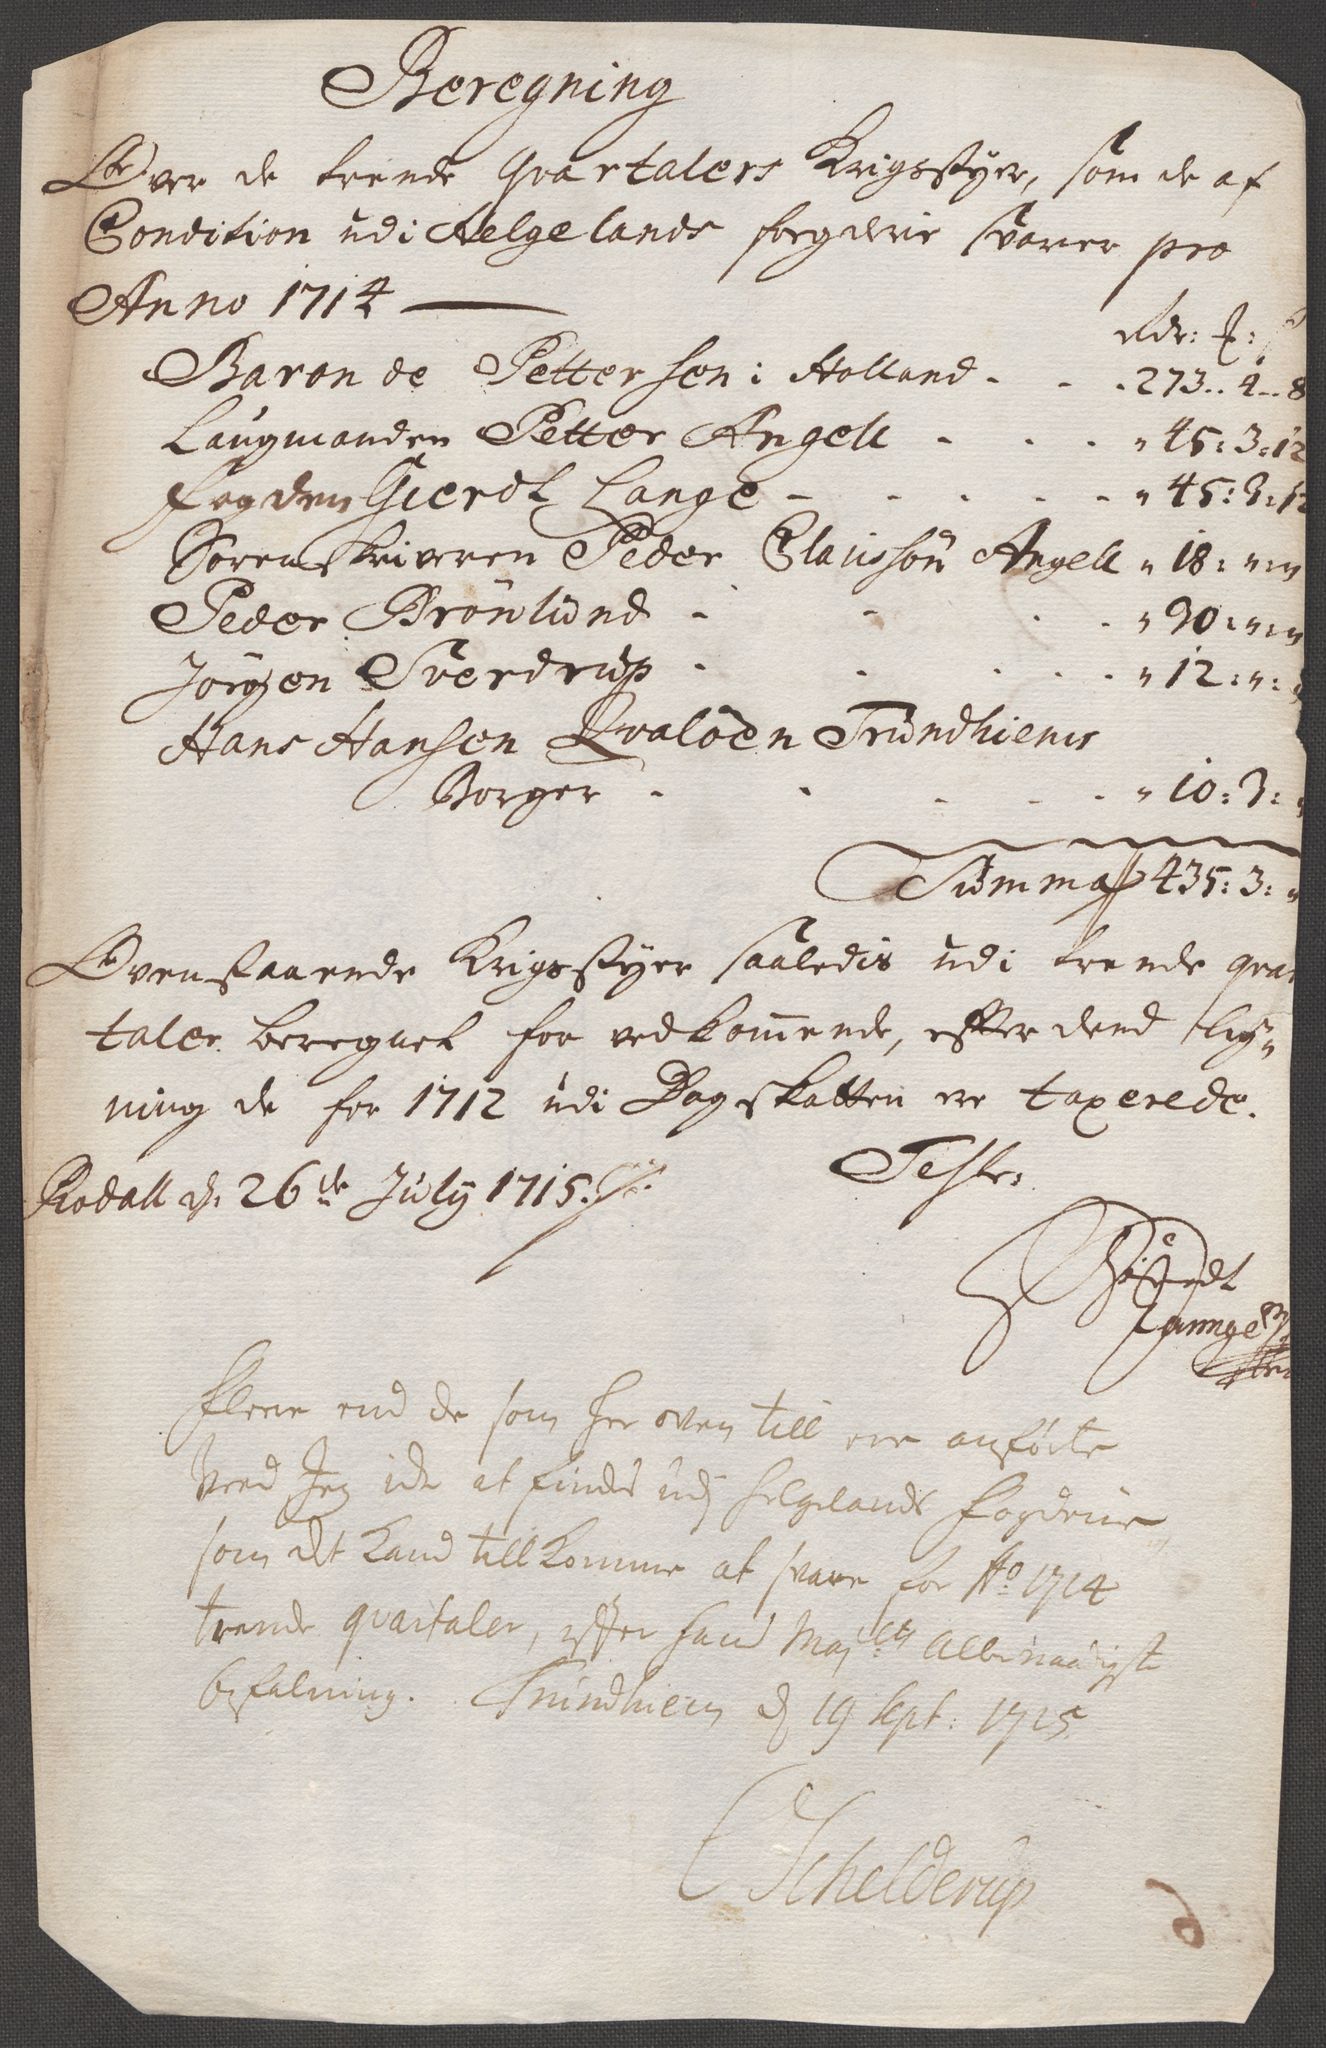 Beregning
Over de trende Qvartalers Krigsstyer, som de af
Condition udi Helgelands fogderie svarer pro
Anno 1714
Rdr: ₰: ß
Baron de Pettersen i Holland - - - 273.. 4.. 8
Laugmanden Petter Angell - - - „ 45: 3: 12
fogden Gierdt Lange - - - - - „ 45: 3: 12
Sorenskriveren Peder Claussøn Angell „ 18: „: „
Peder Brönlund - - - - „ 30: „: „
Jörgen Sverdrup - - - - - „ 12: „: „
Hans Hansen Qvalöen Trundhiems
Borger - - - - - „ 10: 3: „
Summa 435: 3: „
Ovenstaaende Krigsstyer saaledis udi trende qvar
taler beregnet for vedkommende, efter dend lig¬
ning de for 1712 udi Dagskatten ere taxerede.
Rodall d: 26de July 1715.
Test:
Giærdt
Lannge
Flere end de som her oven till ere anførte
veed Jeg icke at findes udj Helgelands fogderie
som det kand tillkomme at svare for Ao 1714
trende qvartaler, efter hans Maj:ts Allernaadigste
befalning. Trundhiem d 19 Sept: 1715
Schelderup
6